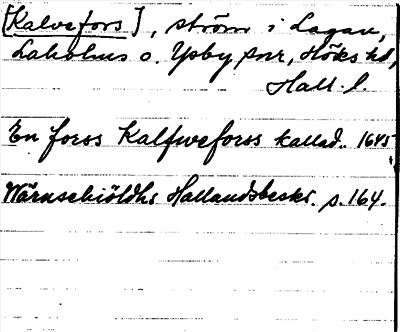 [Kalvefors], ström i Lagan,
Laholms o. Ysby snr, Höks hd,
Hall. l.
En forss Kalfweforss kallad. 1645
Wärnschiöldhs Hallandsbeskr. s. 164.